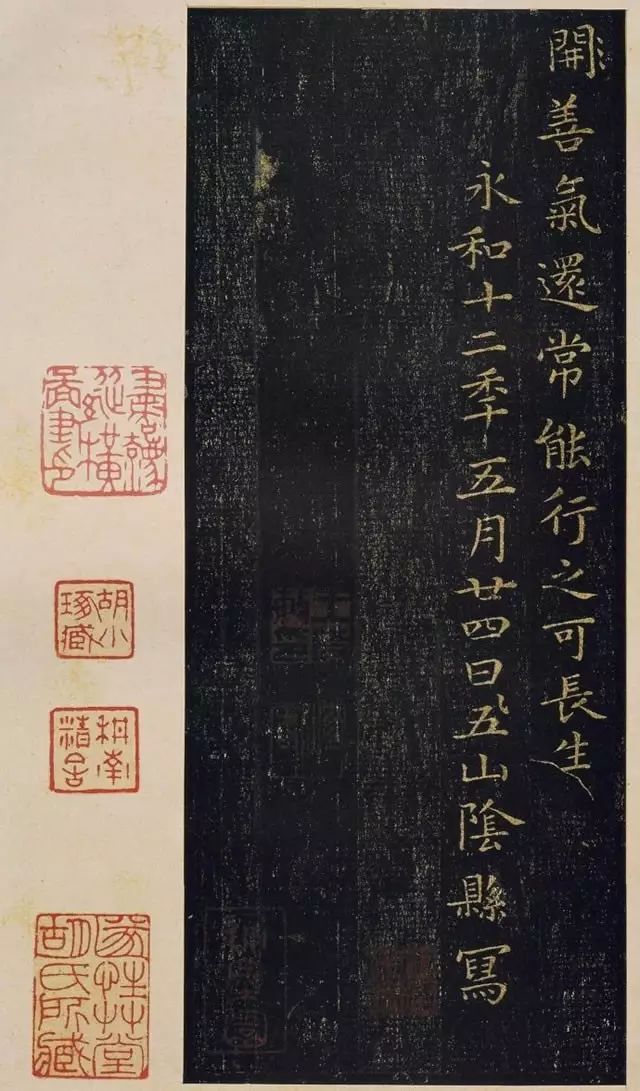 開善氣還常能行之可長生
永和十二秊五月廿四日五山陰縣寫
胡小琢藏
胡氏所藏